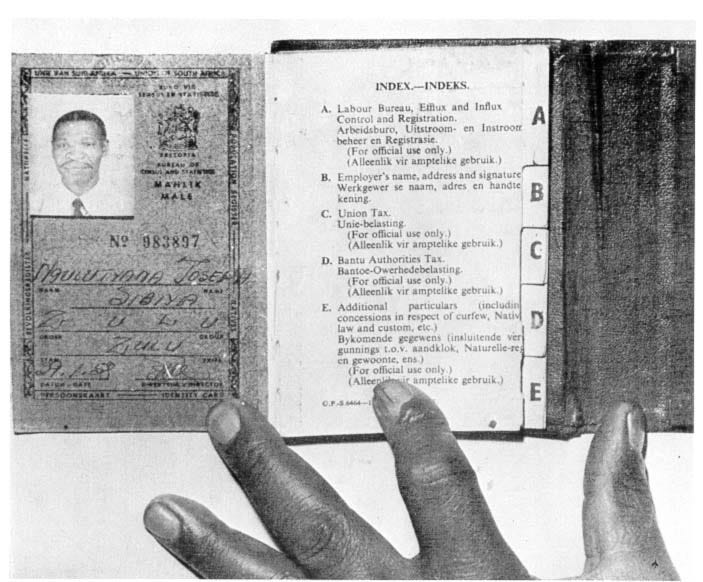 UNIE VAN SUID-AFRIKA — UNION OF SOUTH AFRICA
BURO VIR
SENSUS EN STATISTIEK
PRETORIA
BUREAU OF
CENSUS AND STATISTICS
MANLIK
MALE
POPULATION REGISTER
BEVOLKINGSREGISTER
NATURELLE
NATIVE
Nº 983897
JOSEPH
NAAM NAME
SIBIYA
ZULU
GROEP GROUP
ZULU
STAM TRIBE
DATUM - DATE DIREKTEUR / DIRECTOR
PERSOONSKAART — IDENTITY CARD
INDEX.—INDEKS.
A. Labour Bureau, Efflux and Influx
Control and Registration.
Arbeidsburo, Uitstroom- en Instroom
beheer en Registrasie.
(For official use only.)
(Alleenlik vir amptelike gebruik.)
B. Employer's name, address and signature
Werkgewer se naam, adres en handte
kening.
C. Union Tax.
Unie-belasting.
(For official use only.)
(Alleenlik vir amptelike gebruik.)
D. Bantu Authorities Tax.
Bantoe-Owerhedebelasting.
(For official use only.)
(Alleenlik vir amptelike gebruik.)
E. Additional particulars (includin
concessions in respect of curfew, Nativ
law and custom, etc.)
Bykomende gegewens (insluitende ver
gunnings t.o.v. aandklok, Naturelle-re
en gewoonte, ens.)
(For official use only.)
(Alleenlik vir amptelike gebruik.)
G.P.-S.6464—1
A
B
C
D
E